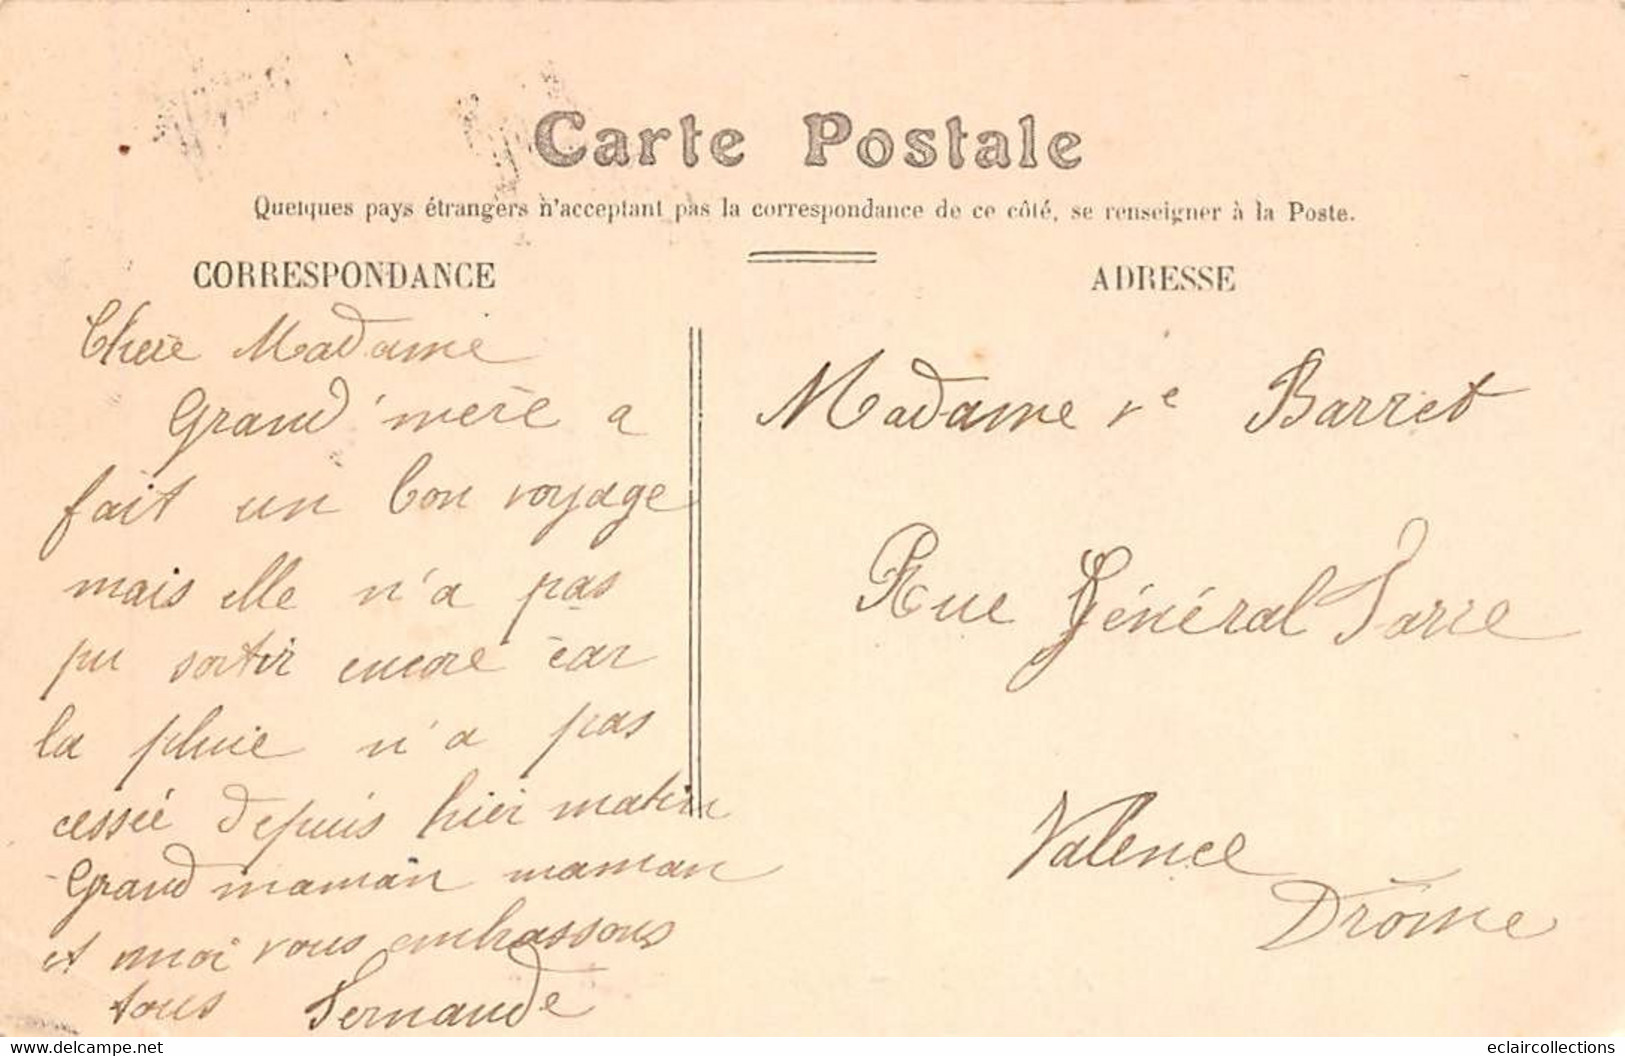 Carte Postale
Quelques pays étrangers n'acceptant pas la correspondance de ce côté, se renseigner à la Poste.
CORRESPONDANCE
Chère Madame
Grand'mère a
fait un bon voyage
mais elle n'a pas
pu sortir encore car
la pluie n'a pas
cessée depuis hier matin
Grand maman maman
et moi vous embrassons
tous Fernande
ADRESSE
Madame Ve Barret
Rue Général Farre
Valence
Drôme
delcampe.net
eclaircollections